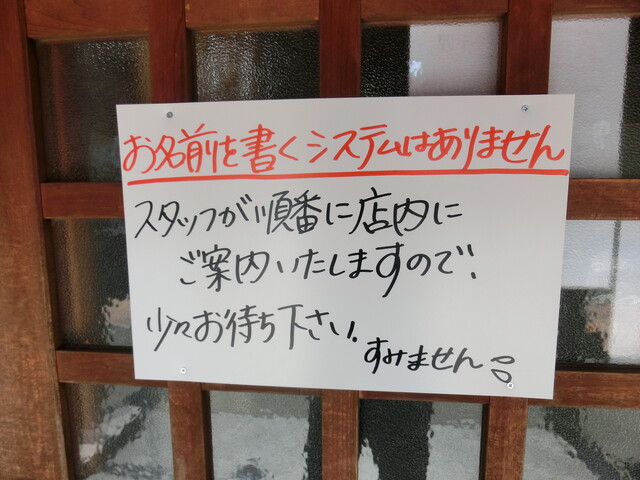 お名前を書くシステムはありません
スタッフが順番に店内に
ご案内いたしますので、
少々お待ち下さい。
すみません